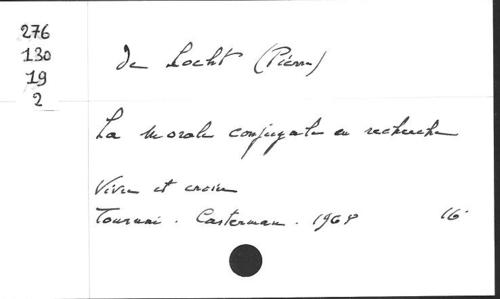 276
130
19
2
de Locht (Pierre)
La morale conjugale en recherche
Vivre et croire
Tournai. Casterman. 1968 16°